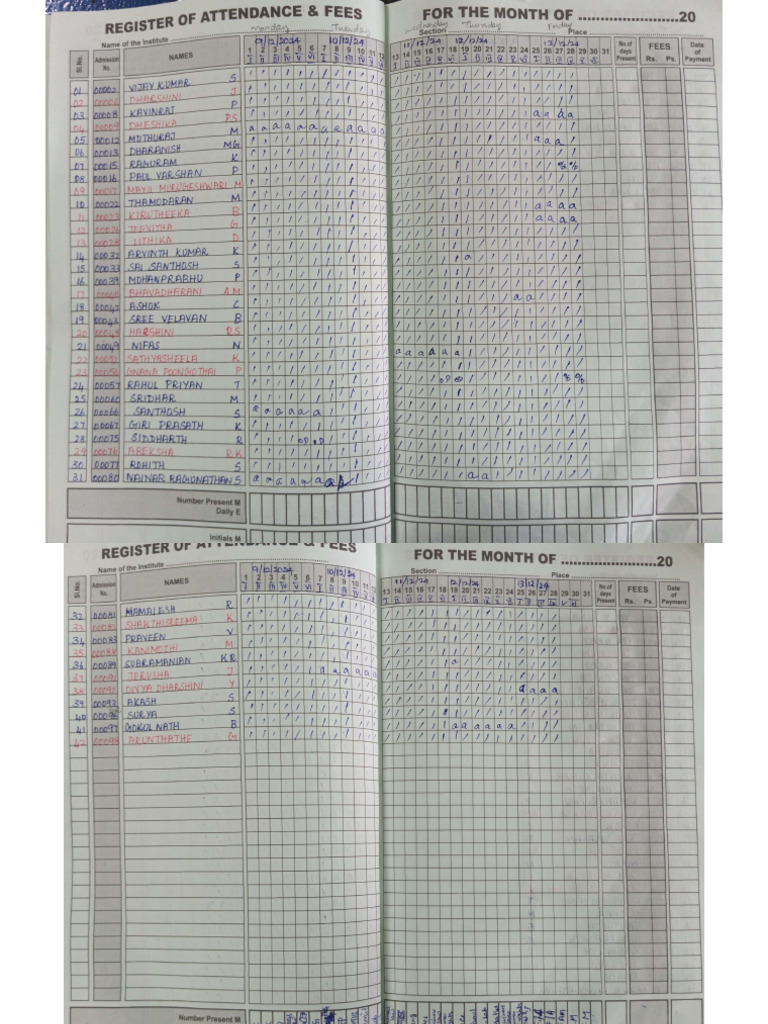 REGISTER OF ATTENDANCE & FEES FOR THE MONTH OF ........................20
monday Tuesday wednesday Thursday Friday
Name of the Institute Section Place
Sl.No. Admission No. NAMES 9/12/2024 10/12/24 11/12/24 12/12/24 13/12/24 No.of days Present FEES Rs. Ps. Date of Payment
1 2 3 4 5 6 7 8 9 10 11 12 13 14 15 16 17 18 19 20 21 22 23 24 25 26 27 28 29 30 31
01 00002 VIJAY KUMAR S
02 DHARSHINI J
03 00008 KAVINRAJ P a a a a
04 00009 DHESHIKA P.S
05 00012 MOTHURAJ M a a a a a a a a a a a a
06 00013 DHARANISH MG
07 00015 RANURAM K
08 00016 PAUL VARSHAN P
09 00017 MAYIL MURUGESHWARI M
10 00022 THAMODARAN M
11 00023 KIRUTHEEKA B
12 00026 JEEVITHA G
13 00028 LITHIKA D
14 00032 ARVINTH KUMAR K
15 00033 SAI SANTHOSH S
16 00039 MOHANPRABHU P
17 BHAVADHARANI A.M
18 00042 ASHOK C
19 00043 SREE VELAVAN B
20 00045 HARSHINI R.S
21 00049 NIFAS N
22 00052 SATHYASHEELA K
23 00056 GNANA POONGOTHAI P
24 00057 RAHUL PRIYAN T
25 00060 SRIDHAR M
26 00066 SANTHOSH S a a a a a a
27 00067 GIRI PRASATH K
28 00075 SIDDHARTH R
29 00076 AREKSHA R.K
30 00077 ROHITH S
31 00080 NAINAR RAGUNATHAN S
Number Present M
Daily E
Initials M
REGISTER OF ATTENDANCE & FEES FOR THE MONTH OF ........................20
Name of the Institute Section Place
Sl.No. Admission No. NAMES 9/12/2024 10/12/24 11/12/24 12/12/24 13/12/24 No.of days Present FEES Rs. Ps. Date of Payment
1 2 3 4 5 6 7 8 9 10 11 12 13 14 15 16 17 18 19 20 21 22 23 24 25 26 27 28 29 30 31
32 00081 MAMALESH R
33 00082 SHAKTHISREEMA K
34 00083 PRAVEEN V
35 00088 KANIMOTHI M
36 00089 SUBRAMANIAN K.R
37 00091 JERUSHA J
38 00092 DIVYA DHARSHINI Y
39 00093 AKASH S
40 SURYA S
41 00097 GOKUL NATH B a a a a a a
42 00098 ARUNTHATHE G
Number Present M